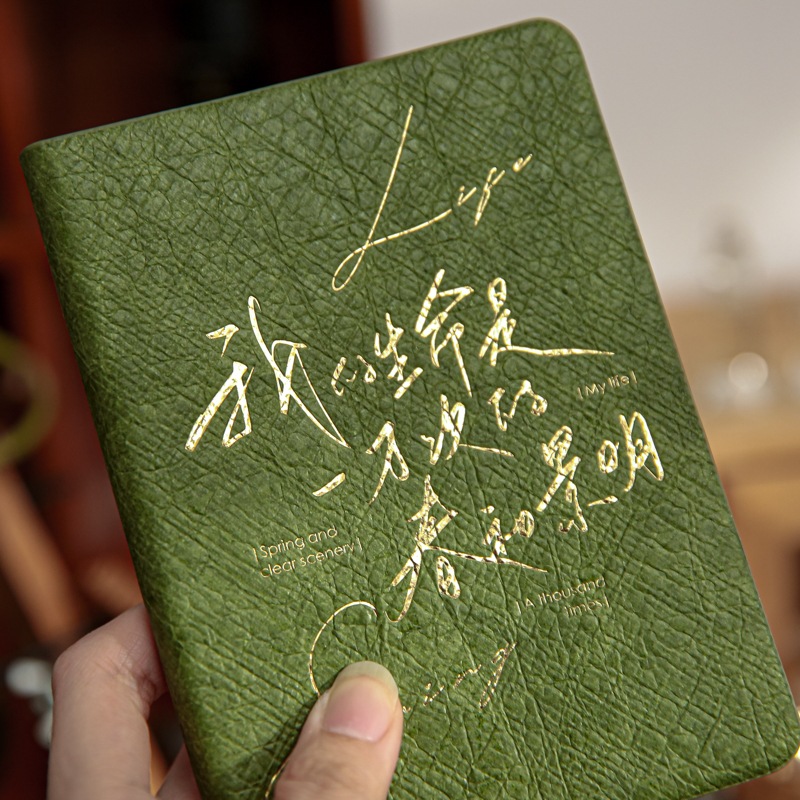 Life
我的生命是
|My life|
一万次的
春和景明
|Spring and
clear scenery|
|A thousand
times|